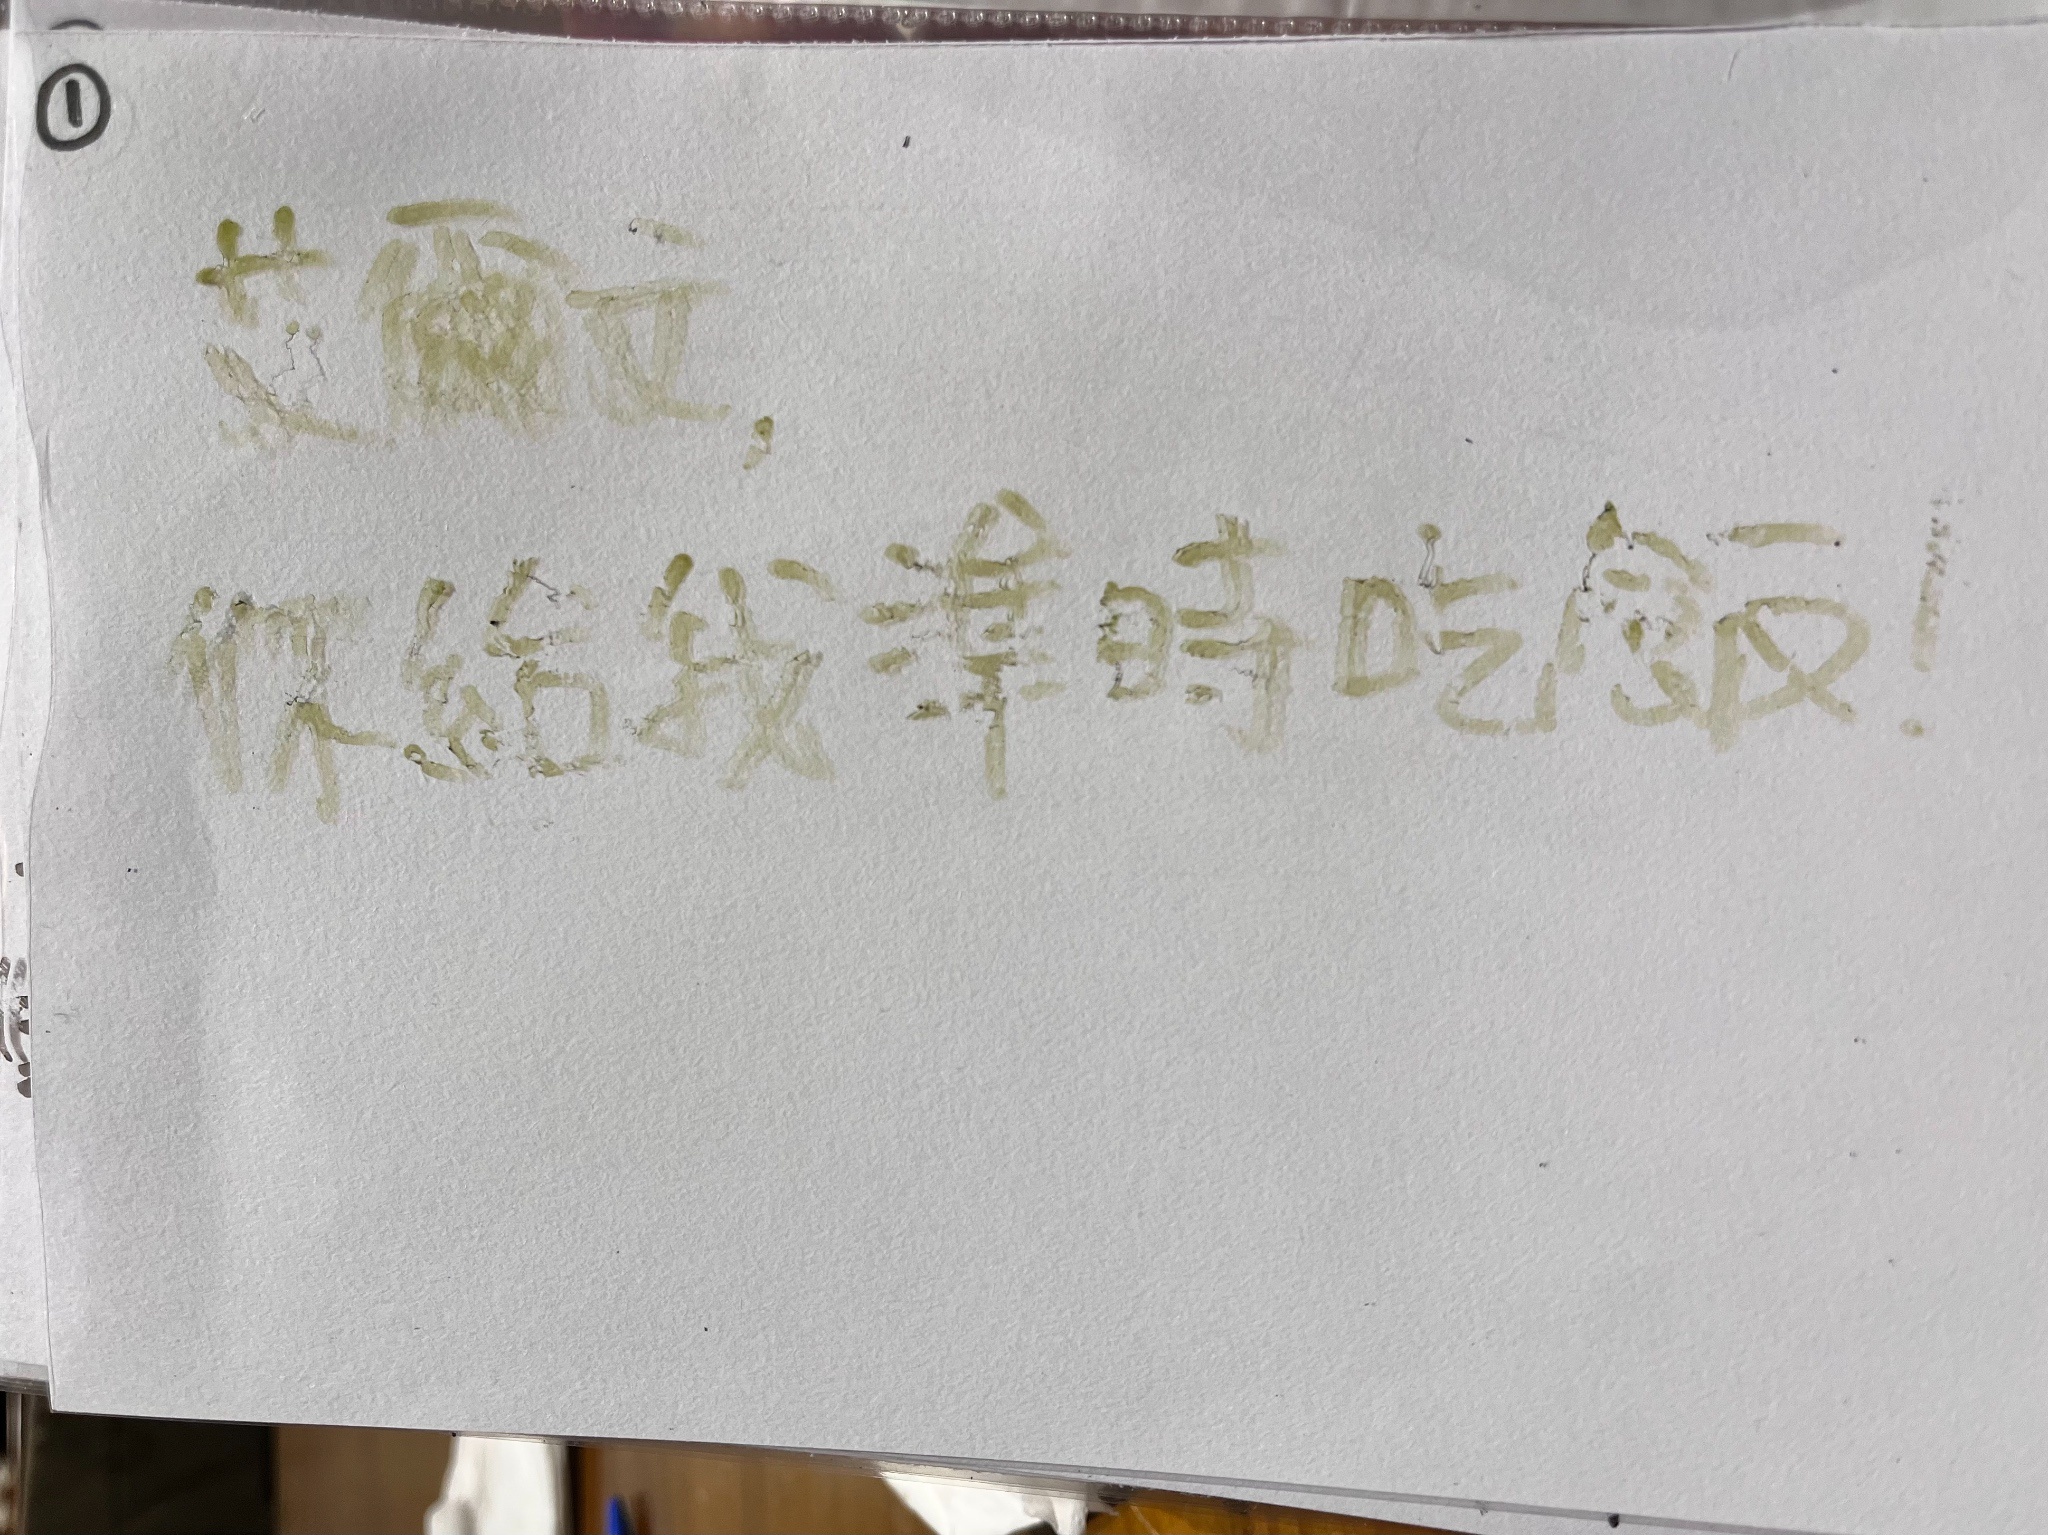 ①
艾爾文,
你給我準時吃飯!